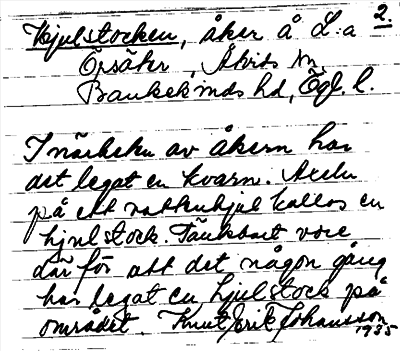 2.
Hjulstocken, åker å L:a
Örsäter, Åtvids sn,
Bankekinds hd, Ögl. l.
I närheten av åkern har
det legat en kvarn. Axeln
på ett vattenhjul kallas en
hjulstock. Tänkbart vore
därför att det någon gång
har legat en hjulstock på
området. Knut Erik Johansson
1935